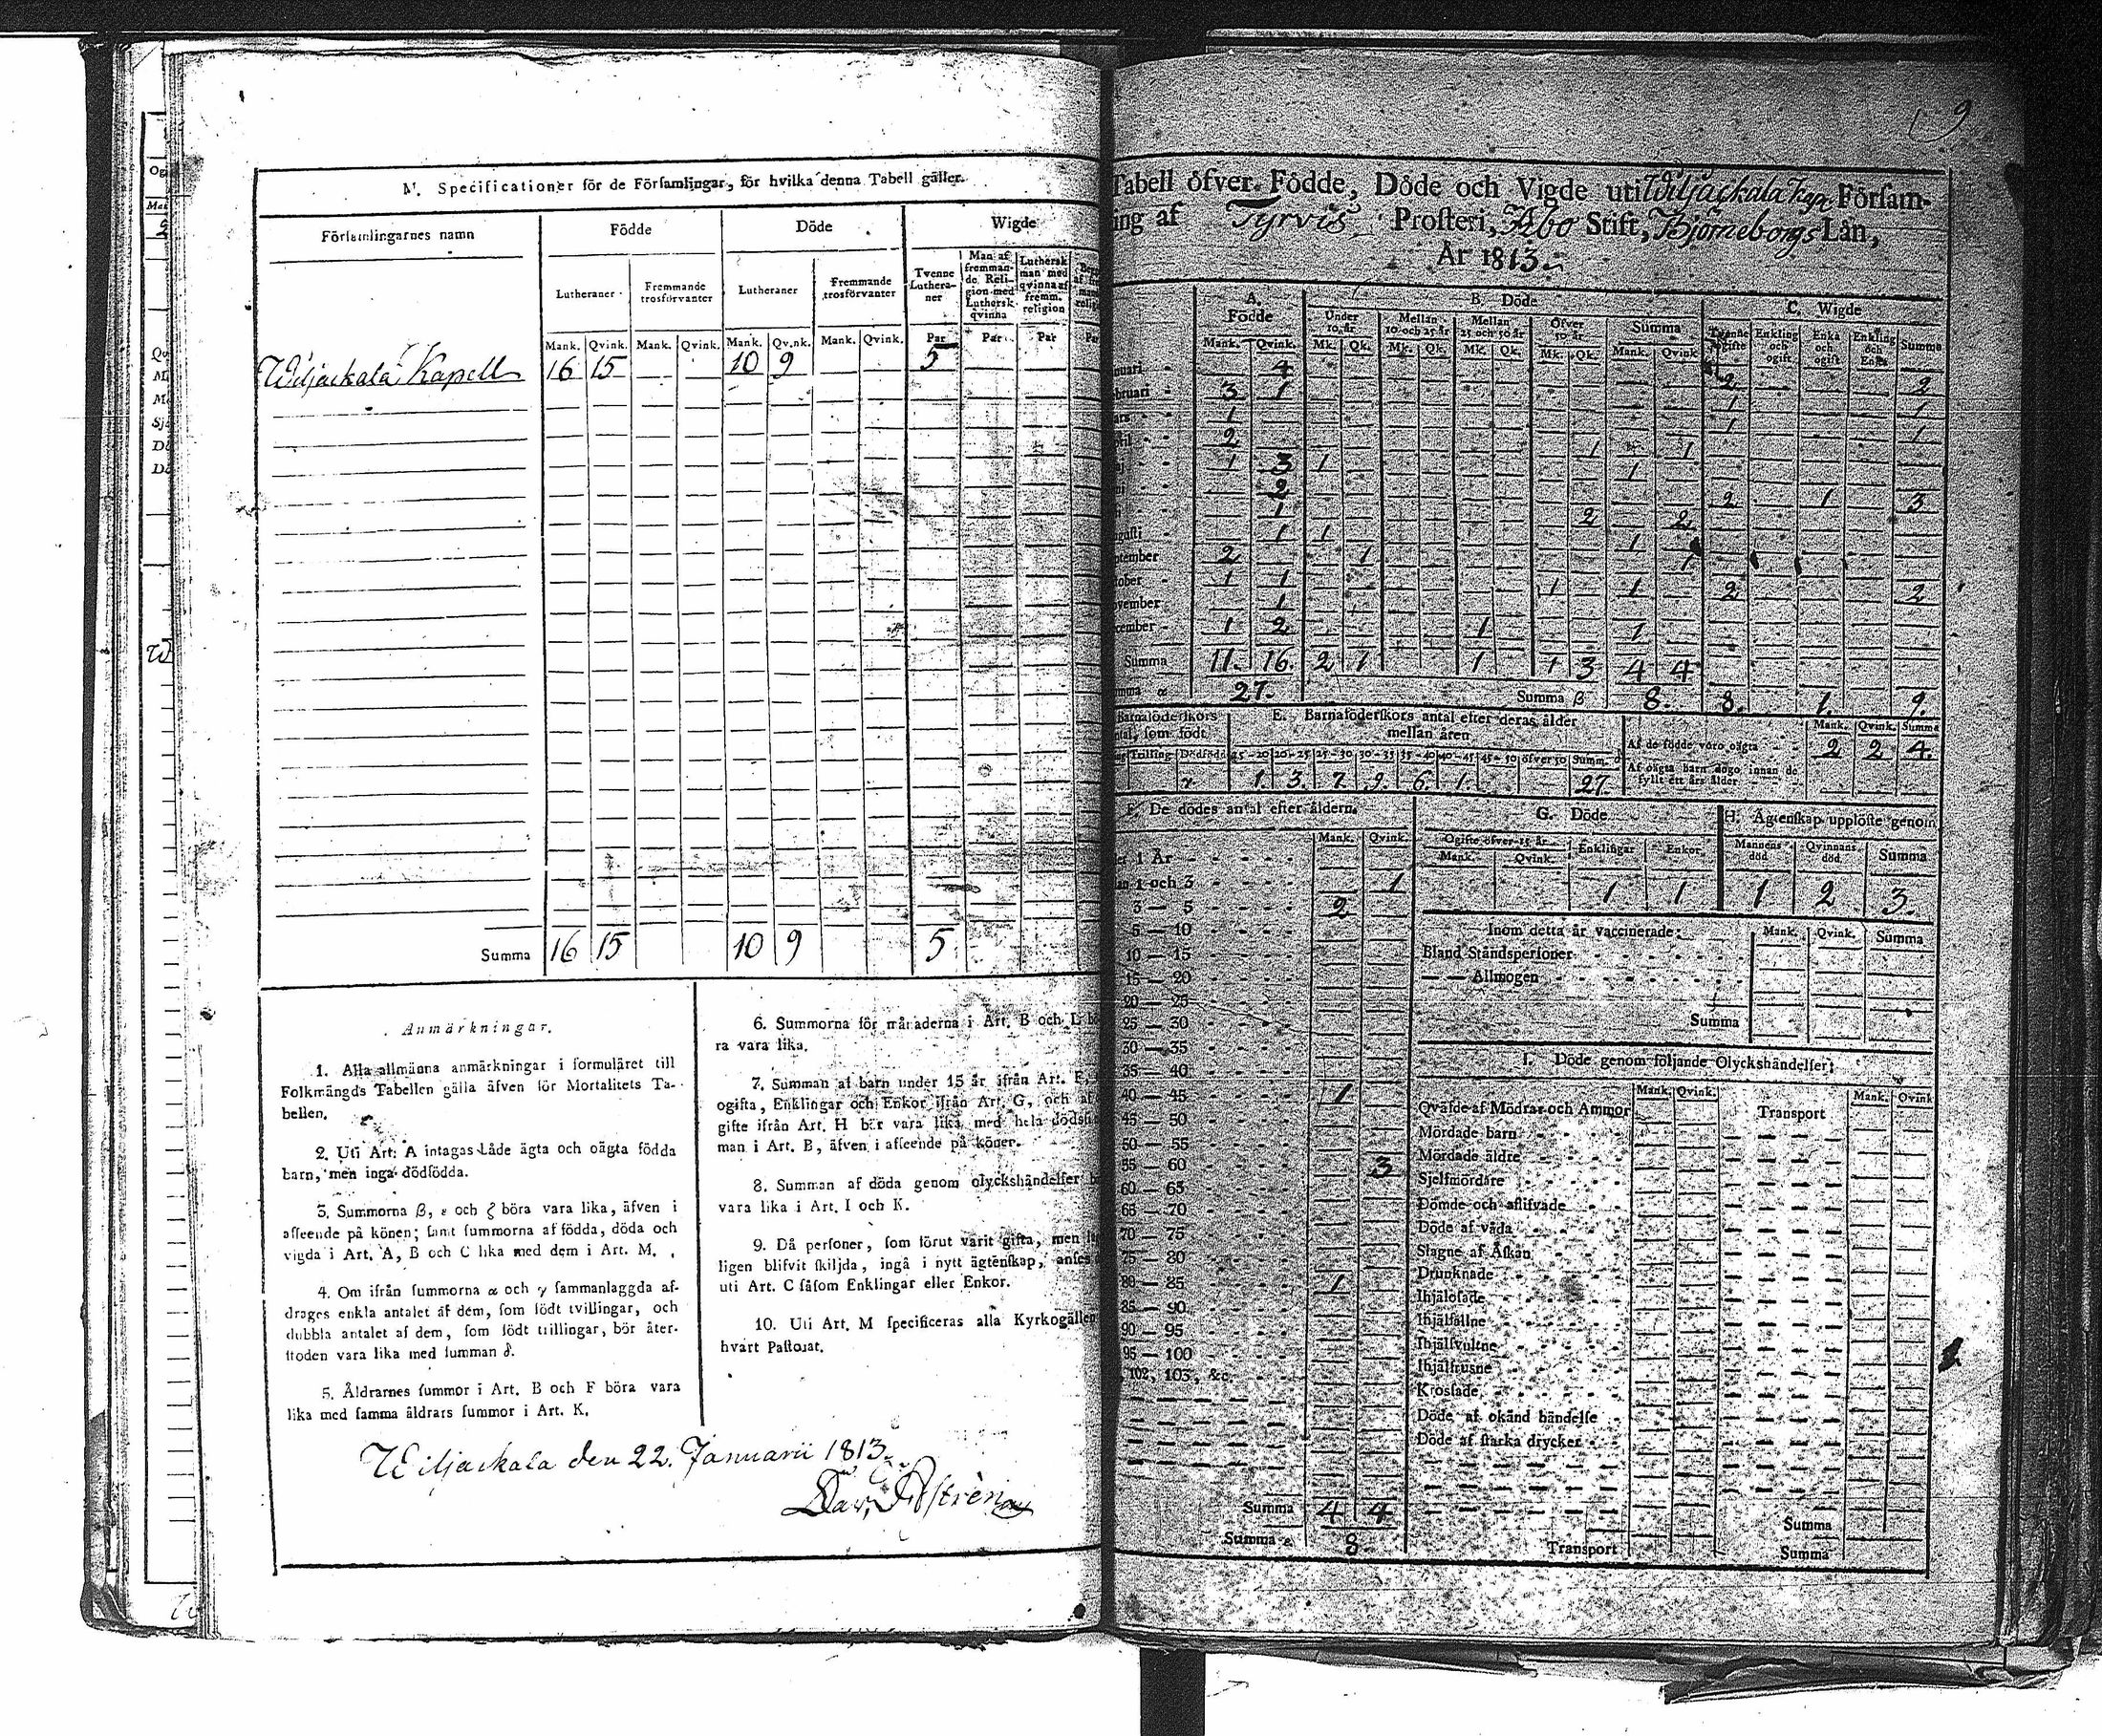 M. Specificationer för de Förſamlingar, för hvilka denna Tabell gäller.
Förſamlingarnes namn
Födde
Döde
Wigde
Lutheraner
Fremmande trosförvanter
Lutheraner
Fremmande trosförvanter
Tvenne Lutheraner
Man af fremmande Religion med Luthersk qvinna
Luthersk man med qvinna af fremm. religion
Mank. Qvink. Mank. Qvink. Mank. Qvink. Mank. Qvink. Par Par Par
Wiljackala Kapell 16 15 10 9 5
Summa 16 15 10 9 5
Anmärkningar.
1. Alla allmänna anmärkningar i formuläret till
Folkmängds Tabellen gälla äfven för Mortalitets Ta-
bellen.
2. Uti Art. A intagas både ägta och oägta födda
barn, men inga dödfödda.
3. Summorna β, ε och ζ böra vara lika, äfven i
afſeende på könen; ſamt ſummorna af födda, döda och
vigda i Art. A, B och C lika med dem i Art. M.
4. Om ifrån ſummorna α och γ ſammanlaggda af-
drages enkla antalet af dem, ſom födt tvillingar, och
dubbla antalet af dem, ſom födt trillingar, bör åter-
ſtoden vara lika med ſumman δ.
5. Åldrarnes ſummor i Art. B och F böra vara
lika med ſamma åldrars ſummor i Art. K.
6. Summorna för månaderna i Art. B och L
ra vara lika.
7. Summan af barn under 15 år ifrån Art. F,
ogifta, Enklingar och Enkor ifrån Art. G, och af
gifte ifrån Art. H bör vara lika med hela dödsſu
man i Art. B, äfven i afſeende på könen.
8. Summan af döda genom olyckshändelſer
vara lika i Art. I och K.
9. Då perſoner, ſom förut varit gifta, men
ligen blifvit ſkiljda, ingå i nytt ägtenſkap, anſes
uti Art. C ſåſom Enklingar eller Enkor.
10. Uti Art. M ſpecificeras alla Kyrkogällen
hvart Paſtorat.
Wiljackala den 22. Januarii 1813.
9
Tabell öfver Födde, Döde och Vigde uti Wiljackala Kap. Förſam-
ling af Tyrvis Proſteri, Åbo Stift, Björneborgs Län,
År 1813.
A. Födde
B. Döde
C. Wigde
Under 10 år
Mellan 10 och 25 år
Mellan 25 och 50 år
Öfver 50 år
Summa
Tvenne ogifte
Enkling och ogift
Enka och ogift
Enkling och Enka
Summa
Mank. Qvink. Mk. Qk. Mk. Qk. Mk. Qk. Mk. Qk. Mank. Qvink.
nuari 4 2 2
bruari 3 1 1 1
ars 1 1 1
2 1 1
1 3 1 1
2 2 1 3
1 2 2
guſti 1 1 1
ptember 2 1 1
tober 1 1 1 1 2 2
vember 1
cember 1 2 1 1
Summa 11. 16. 2 1 1 1 3 4 4
Summa α 27. Summa β 8. 8. 1. 9.
Barnaföderſkors
antal, ſom födt
E. Barnaföderſkors antal efter deras ålder
mellan åren
Af de födde voro oägta
Mank. Qvink. Summa
2 2 4.
Af oägta barn dogo innan de
fyllt ett års ålder
Trilling Dödfödd 15—20 20—25 25—30 30—35 35—40 40—45 45—50 öfver 50 Summ. δ
1. 3. 7. 9. 6. 1. 27.
F. De dödes antal efter åldern.
Mank. Qvink.
1 År
1 och 3 1
3 — 5 2
5 — 10
10 — 15
15 — 20
20 — 25
25 — 30
30 — 35
35 — 40
40 — 45 1
45 — 50
50 — 55
55 — 60 3
60 — 65
65 — 70
70 — 75
75 — 80
80 — 85 1
85 — 90
90 — 95
95 — 100
102, 103, &c.
Summa 4 4
Summa ε 8
G. Döde
Ogifte öfver 15 år
Mank. Qvink.
Enklingar
Enkor
1 1
H. Ägtenſkap upplöſte genom
Mannens död
Qvinnans död
Summa
1 2 3.
Inom detta år vaccinerade:
Mank. Qvink. Summa
Bland Ståndsperſoner
— — Allmogen
Summa
I. Döde genom följande Olyckshändelſer:
Mank. Qvink. Mank. Qvink
Qväfde af Mödrar och Ammor
Transport
Mördade barn
Mördade äldre
Sjelfmördare
Dömde och aflifvade
Döde af våda
Slagne af Åſkan
Drunknade
Ihjälöſade
Ihjälfallne
Ihjälſvultne
Ihjälfrusne
Krosſade
Döde af okänd händelſe
Döde af ſtarka drycker
Summa
Transport
Summa